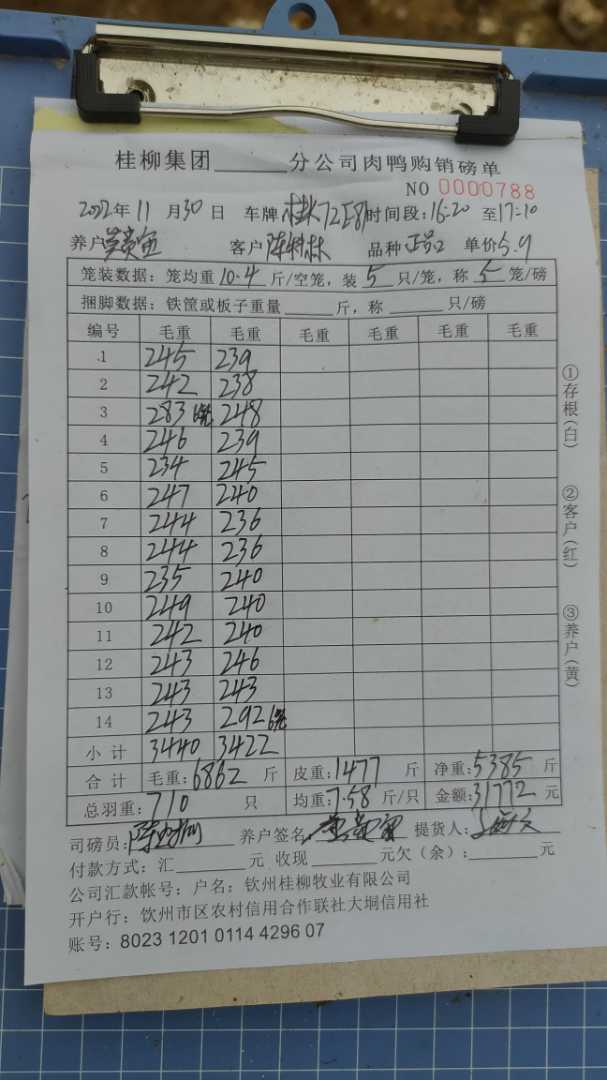 桂柳集团______分公司肉鸭购销磅单
NO 0000788
2022年 11 月 30 日 车牌:桂K72E87 时间段:16:20 至 17:10
养户: 客户:陈村林 品种 正品2 单价5.9
笼装数据:笼均重 10.4 斤/空笼,装 5 只/笼,称 5 笼/磅
捆脚数据:铁筐或板子重量______斤,称______只/磅
编号 毛重 毛重 毛重 毛重 毛重 毛重
1 245 239
2 242 238
3 283 6笼 248
4 246 239
5 234 245
6 247 240
7 244 236
8 244 236
9 235 240
10 249 240
11 242 240
12 243 246
13 243 243
14 243 292 6笼
小计 3440 3422
合计 毛重:6862 斤 皮重:1477 斤 净重:5385 斤
总羽重:710 只 均重:7.58 斤/只 金额:31772 元
①存根(白)
②客户(红)
③养户(黄)
司磅员: 养户签名: 提货人:
付款方式:汇______元 收现______元欠(余):______元
公司汇款帐号:户名:钦州桂柳牧业有限公司
开户行:饮州市区农村信用合作联社大垌信用社
账号:8023 1201 0114 4296 07